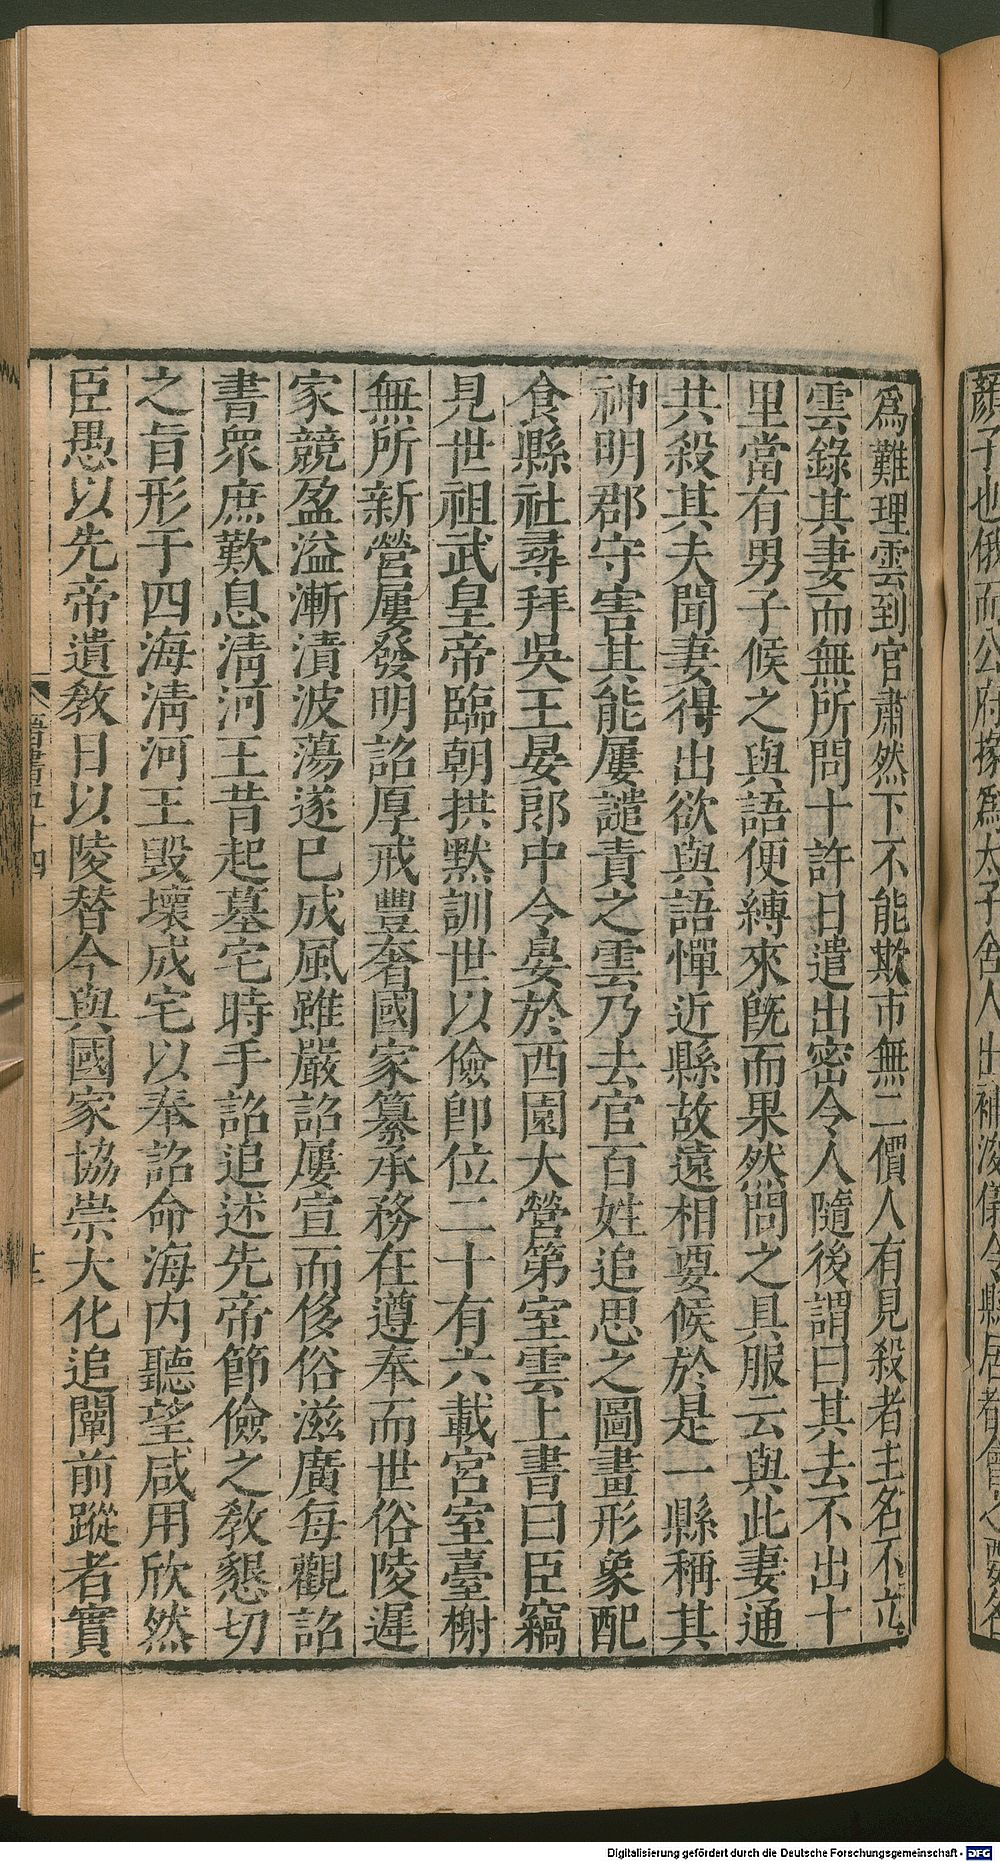 顏子也俄而公府掾爲太子舍人出補浚儀令縣居都會之
爲難理雲到官肅然下不能欺市無二價人有見殺者主名不立
雲錄其妻而無所問十許日遣出密令人隨後謂曰其去不出十
里當有男子候之與語便縛來旣而果然問之具服云與此妻通
共殺其夫聞妻得出欲與語憚近縣故遠相要候於是一縣稱其
神明郡守害其能屢譴責之雲乃去官百姓追思之圖畫形象配
食縣社尋拜吳王晏郎中令晏於西園大營第室雲上書曰臣竊
見世祖武皇帝臨朝拱默訓世以儉卽位二十有六載宮室臺榭
無所新營屢發明詔厚戒豐奢國家纂承務在遵奉而世俗陵遲
家競盈溢漸漬波蕩遂已成風雖嚴詔屢宣而侈俗滋廣每觀詔
書衆庶歎息淸河王昔起墓宅時手詔追述先帝節儉之敎懇切
之旨形于四海淸河王毀壞成宅以奉詔命海内聽望咸用欣然
臣愚以先帝遺敎日以陵替今與國家協崇大化追闡前蹤者實
晉書五十四
Digitalisierung gefördert durch die Deutsche Forschungsgemeinschaft - DFG